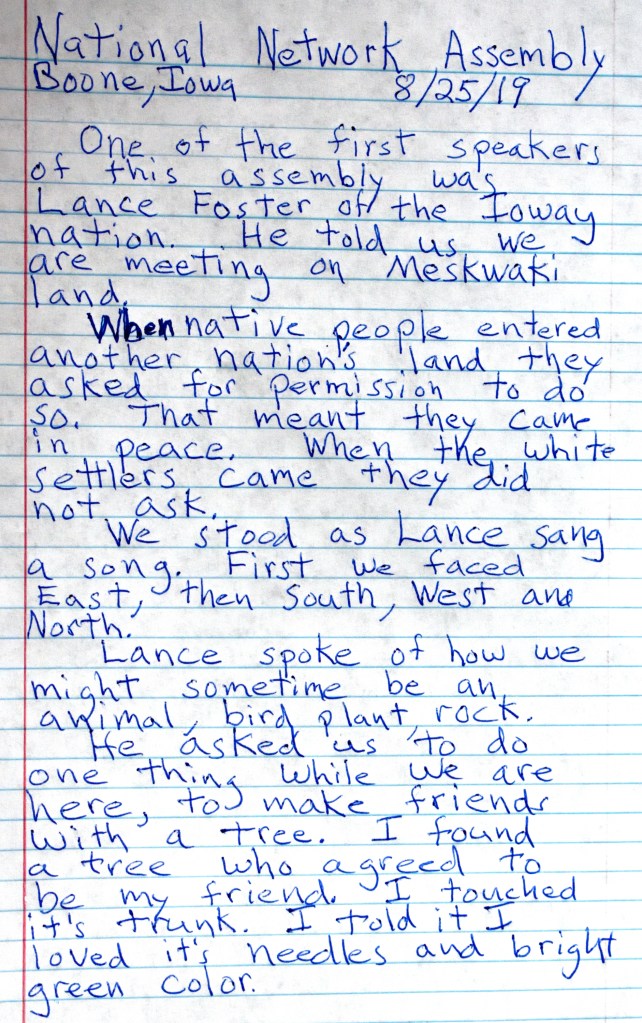 National Network Assembly
Boone, Iowa 8/25/19
One of the first speakers
of this assembly was
Lance Foster of the Ioway
nation. He told us we
are meeting on Meskwaki
land.
When native people entered
another nation's land they
asked for permission to do
so. That meant they came
in peace. When the white
settlers came they did
not ask.
We stood as Lance sang
a song. First we faced
East, then South, West and
North.
Lance spoke of how we
might sometime be an
animal, bird plant, rock.
He asked us to do
one thing while we are
here, to make friends
with a tree. I found
a tree who agreed to
be my friend. I touched
it's trunk. I told it I
loved it's needles and bright
green color.